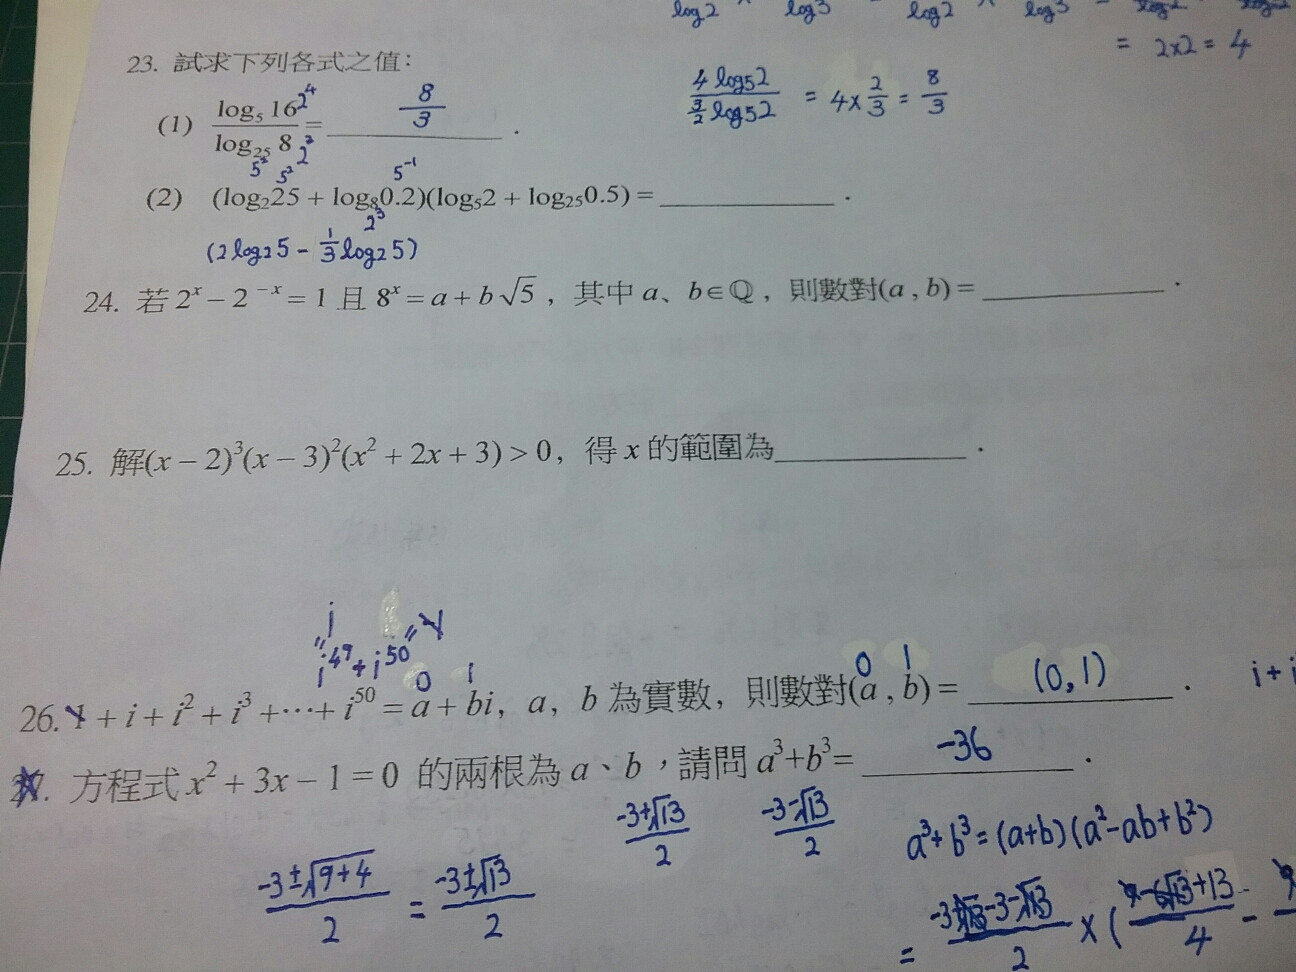 log2 × log3 = log2 × log3 = log2
= 2×2 = 4
23. 試求下列各式之值：
(1) log₅ 16 2⁴ / log₂₅ 8 2³ = 8/3 .
5²
4 log52 / 3/2 log52 = 4× 2/3 = 8/3
5² 5⁻¹
(2) (log₂25 + log₈0.2)(log₅2 + log₂₅0.5) = .
2³
(2 log2 5 - 1/3 log2 5)
24. 若 2ˣ − 2⁻ˣ = 1 且 8ˣ = a + b√5 ，其中 a、b∈ℚ，則數對(a , b) = .
25. 解(x − 2)³(x − 3)²(x² + 2x + 3) > 0，得 x 的範圍為 .
i
i⁴⁹ + i⁵⁰
0 1 0 1
26. 1 + i + i² + i³ + ⋯ + i⁵⁰ = a + bi，a，b 為實數，則數對(a , b) = (0,1) . i+i
方程式 x² + 3x − 1 = 0 的兩根為 a、b，請問 a³+b³= -36 .
-3+√13 / 2 -3-√13 / 2
a³+b³ = (a+b)(a²-ab+b²)
-3±√9+4 / 2 = -3±√13 / 2
= -3+√13-3-√13 / 2 × ( 9-6√13+13 / 4 -